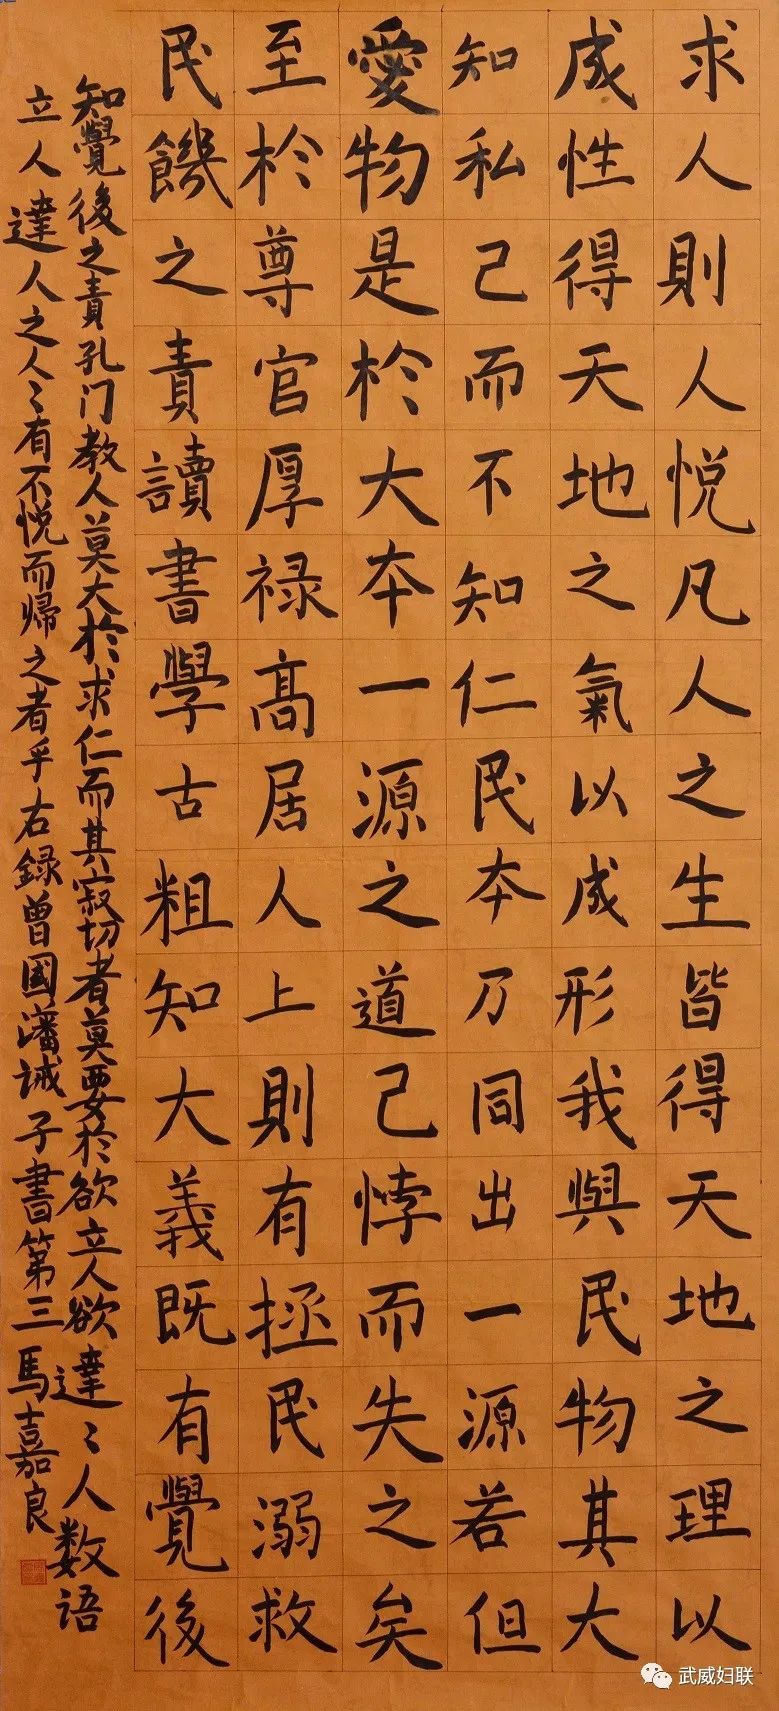 求人則人悦凡人之生皆得天地之理以
成性得天地之氣以成形我與民物其大
知私己而不知仁民本乃同出一源若但
愛物是於大本一源之道己悖而失之矣
至於尊官厚禄高居人上則有拯民溺救
民饑之責讀書學古粗知大義既有覺後
知覺後之責孔门教人莫大於求仁而其寂切者莫要於欲立人欲達〻人数语
立人達人之人〻有不悦而帰之者乎右録曾國藩誡子書第三 馬嘉良
武威妇联